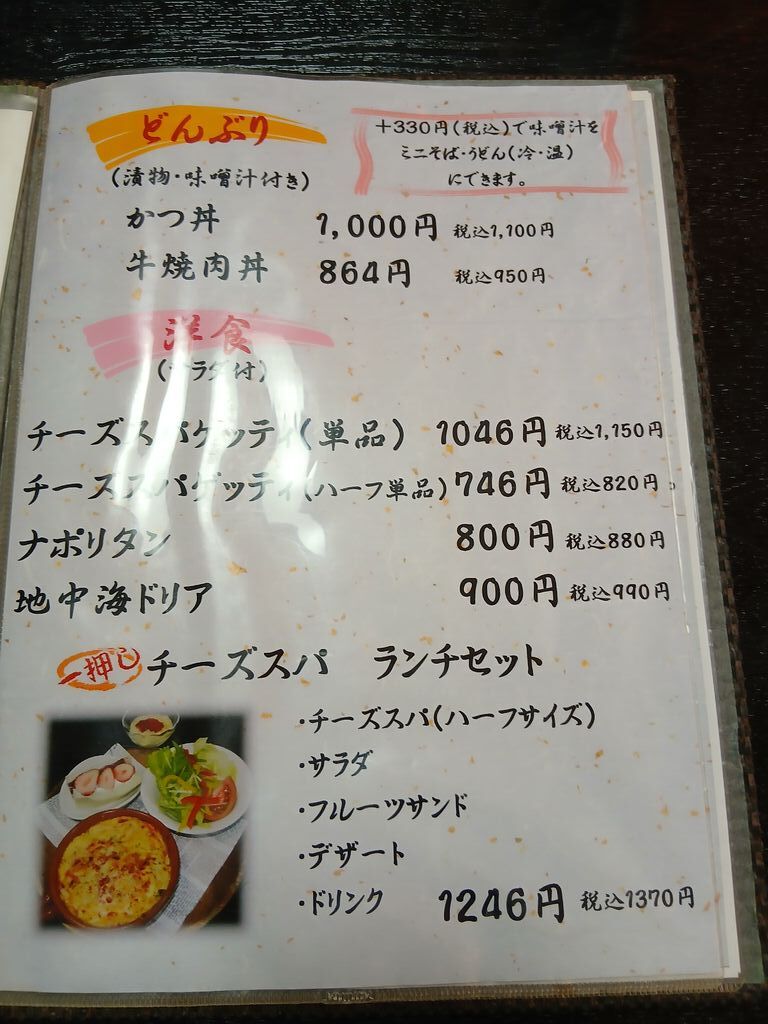 どんぶり
(漬物・味噌汁付き)
+330円(税込)で味噌汁を
ミニそば・うどん(冷・温)
にできます。
かつ丼 1,000円 税込1,100円
牛焼肉丼 864円 税込950円
洋食
(サラダ付)
チーズスパゲッティ(単品) 1046円 税込1,150円
チーズスパゲッティ(ハーフ単品) 746円 税込820円
ナポリタン 800円 税込880円
地中海ドリア 900円 税込990円
一押し チーズスパ ランチセット
・チーズスパ(ハーフサイズ)
・サラダ
・フルーツサンド
・デザート
・ドリンク 1246円 税込1370円